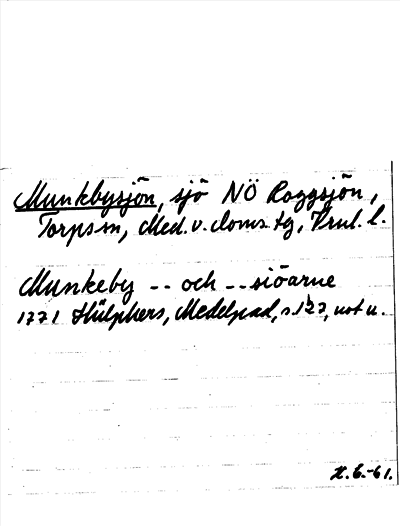 Munkbysjön, sjö NÖ Roggsjön,
Torps sn, Med. v. doms. tg, Vnl. l.
Munkeby -- och -- siöarne
1771 Hülphers, Medelpad, s. 127, not u.
X. 6.-61.